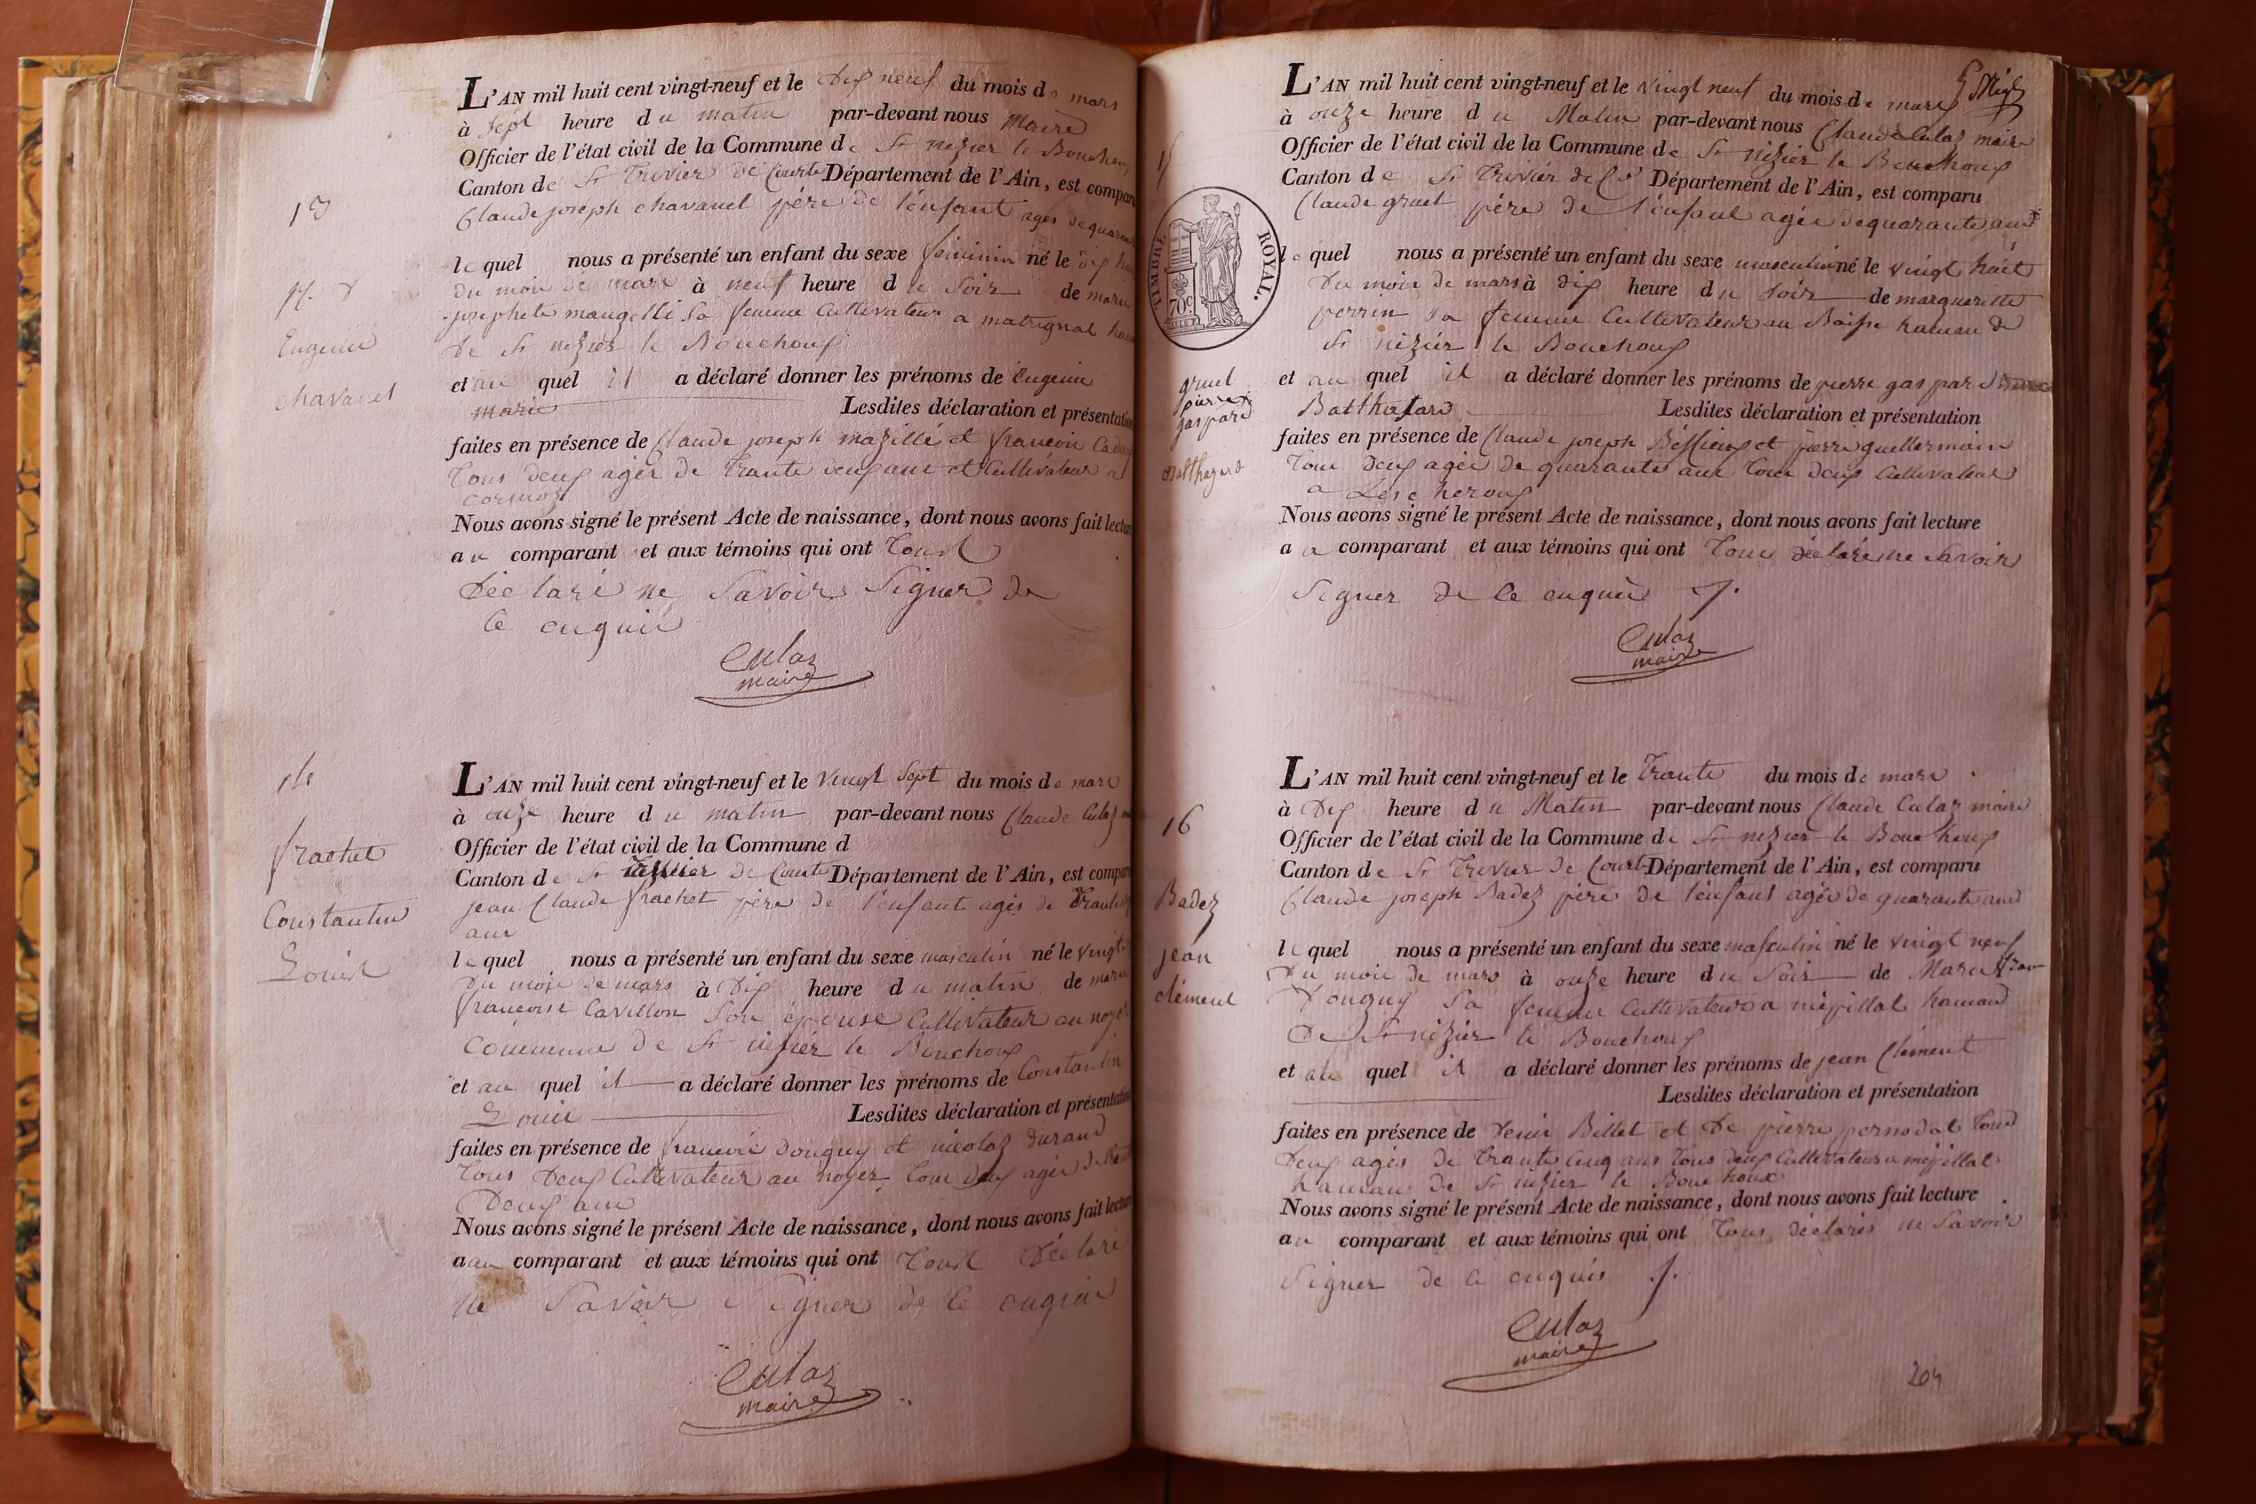 L'AN mil huit cent vingt-neuf et le Dix neuf du mois de mars
à sept heure du matin par-devant nous Maire
Officier de l'état civil de la Commune de St nizier le Bouchoux
Canton de St Trivier de Courte Département de l'Ain, est compar
Claude joseph chavanel père de l'enfant agés de quaran
lequel nous a présenté un enfant du sexe feminin né le dix
du mois de mars à neuf heure du Soir de marie
josephete sa femme Cultivateur a
De St nizier le Bouchoux
et au quel il a déclaré donner les prénoms de Eugenie
marie Lesdites déclaration et présentation
faites en présence de Claude joseph mazillé et francois
Tous deux agés de trante deux ans et Cultivateur a
cormoz
Nous avons signé le présent Acte de naissance, dont nous avons fait lectu
au comparant et aux témoins qui ont Tous
Déclaré ne Savoir Signer de
Ce enquis
Culaz
maire
Eugenie
chavanel
14
frachet
Constantin
Louis
L'AN mil huit cent vingt-neuf et le Vingt Sept du mois de mars
à onze heure du matin par-devant nous Claude Culaz
Officier de l'état civil de la Commune d
Canton de St Trivier de Courte Département de l'Ain, est compar
jean Claude frachet père de l'enfant agés de Trante
ans
lequel nous a présenté un enfant du sexe masculin né le vingt
Du mois de mars à Dix heure du matin de marie
françoise Cavillon Son épouse Cultivateur au noyer
Commune de St nizier le Bouchoux
et au quel il a déclaré donner les prénoms de Constantin
Louis Lesdites déclaration et présentation
faites en présence de francois Douguy et nicolaz Durand
Tous Deux Cultivateur au noyer Tous deux agés de
Deux ans
Nous avons signé le présent Acte de naissance, dont nous avons fait lectu
aau comparant et aux témoins qui ont Tous Déclaré
ne Savoir Signer de Ce enquis
Culaz
maire
L'AN mil huit cent vingt-neuf et le vingt neuf du mois de mars
à onze heure du Matin par-devant nous Claude Culaz maire
Officier de l'état civil de la Commune de St nizier le Bouchoux
Canton de St Trivier de Département de l'Ain, est comparu
Claude gruel père de l'enfant agée de quarante ans
lequel nous a présenté un enfant du sexe masculin né le vingt huit
Du mois de mars à dix heure du Soir de margueritte
perrin sa femme Cultivateur au hameau de
St nizier le Bouchoux
et au quel il a déclaré donner les prénoms de pierre gaspar
Balthazard Lesdites déclaration et présentation
faites en présence de Claude joseph et pierre guillermain
Tous Deux agés de quarante ans Tous deux Cultivateur
a Lescheroux
Nous avons signé le présent Acte de naissance, dont nous avons fait lecture
au comparant et aux témoins qui ont Tous déclaré ne Savoir
Signer de Ce enquis
Culaz
maire
TIMBRE ROYAL.
70c
gruel
pierre
gaspard
Balthazard
16
Badez
jean
clément
L'AN mil huit cent vingt-neuf et le Trante du mois de mars
à Dix heure du Matin par-devant nous Claude Culaz maire
Officier de l'état civil de la Commune de St nizier le Bouchoux
Canton de St Trivier de Courte Département de l'Ain, est comparu
Claude joseph Badez père de l'enfant agée de quarante ans
lequel nous a présenté un enfant du sexe masculin né le vingt neuf
Du mois de mars à onze heure du Soir de Marie fran
Douguy Sa femme Cultivateur a mépillat hameau
De St nizier le Bouchoux
et au quel il a déclaré donner les prénoms de jean Clément
Lesdites déclaration et présentation
faites en présence de Denis Billet et De pierre pernodat Tous
Deux agés de trante cinq ans Tous deux Cultivateur a mépillat
hameau de St nizier le Bouchoux
Nous avons signé le présent Acte de naissance, dont nous avons fait lecture
au comparant et aux témoins qui ont Tous déclarés ne Savoir
Signer de Ce enquis
Culaz
maire
204